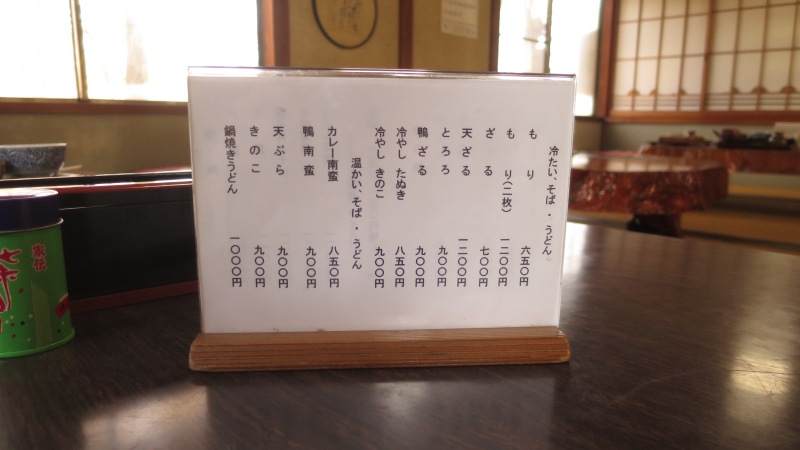 冷たい、そば・うどん
もり 六五〇円
もり(二枚) 一二〇〇円
ざる 七〇〇円
天ざる 一二〇〇円
とろろ 九〇〇円
鴨ざる 九〇〇円
冷やし たぬき 八五〇円
冷やし きのこ 九〇〇円
温かい、そば・うどん
カレー南蛮 八五〇円
鴨南蛮 九〇〇円
天ぷら 九〇〇円
きのこ 九〇〇円
鍋焼きうどん 一〇〇〇円
家伝